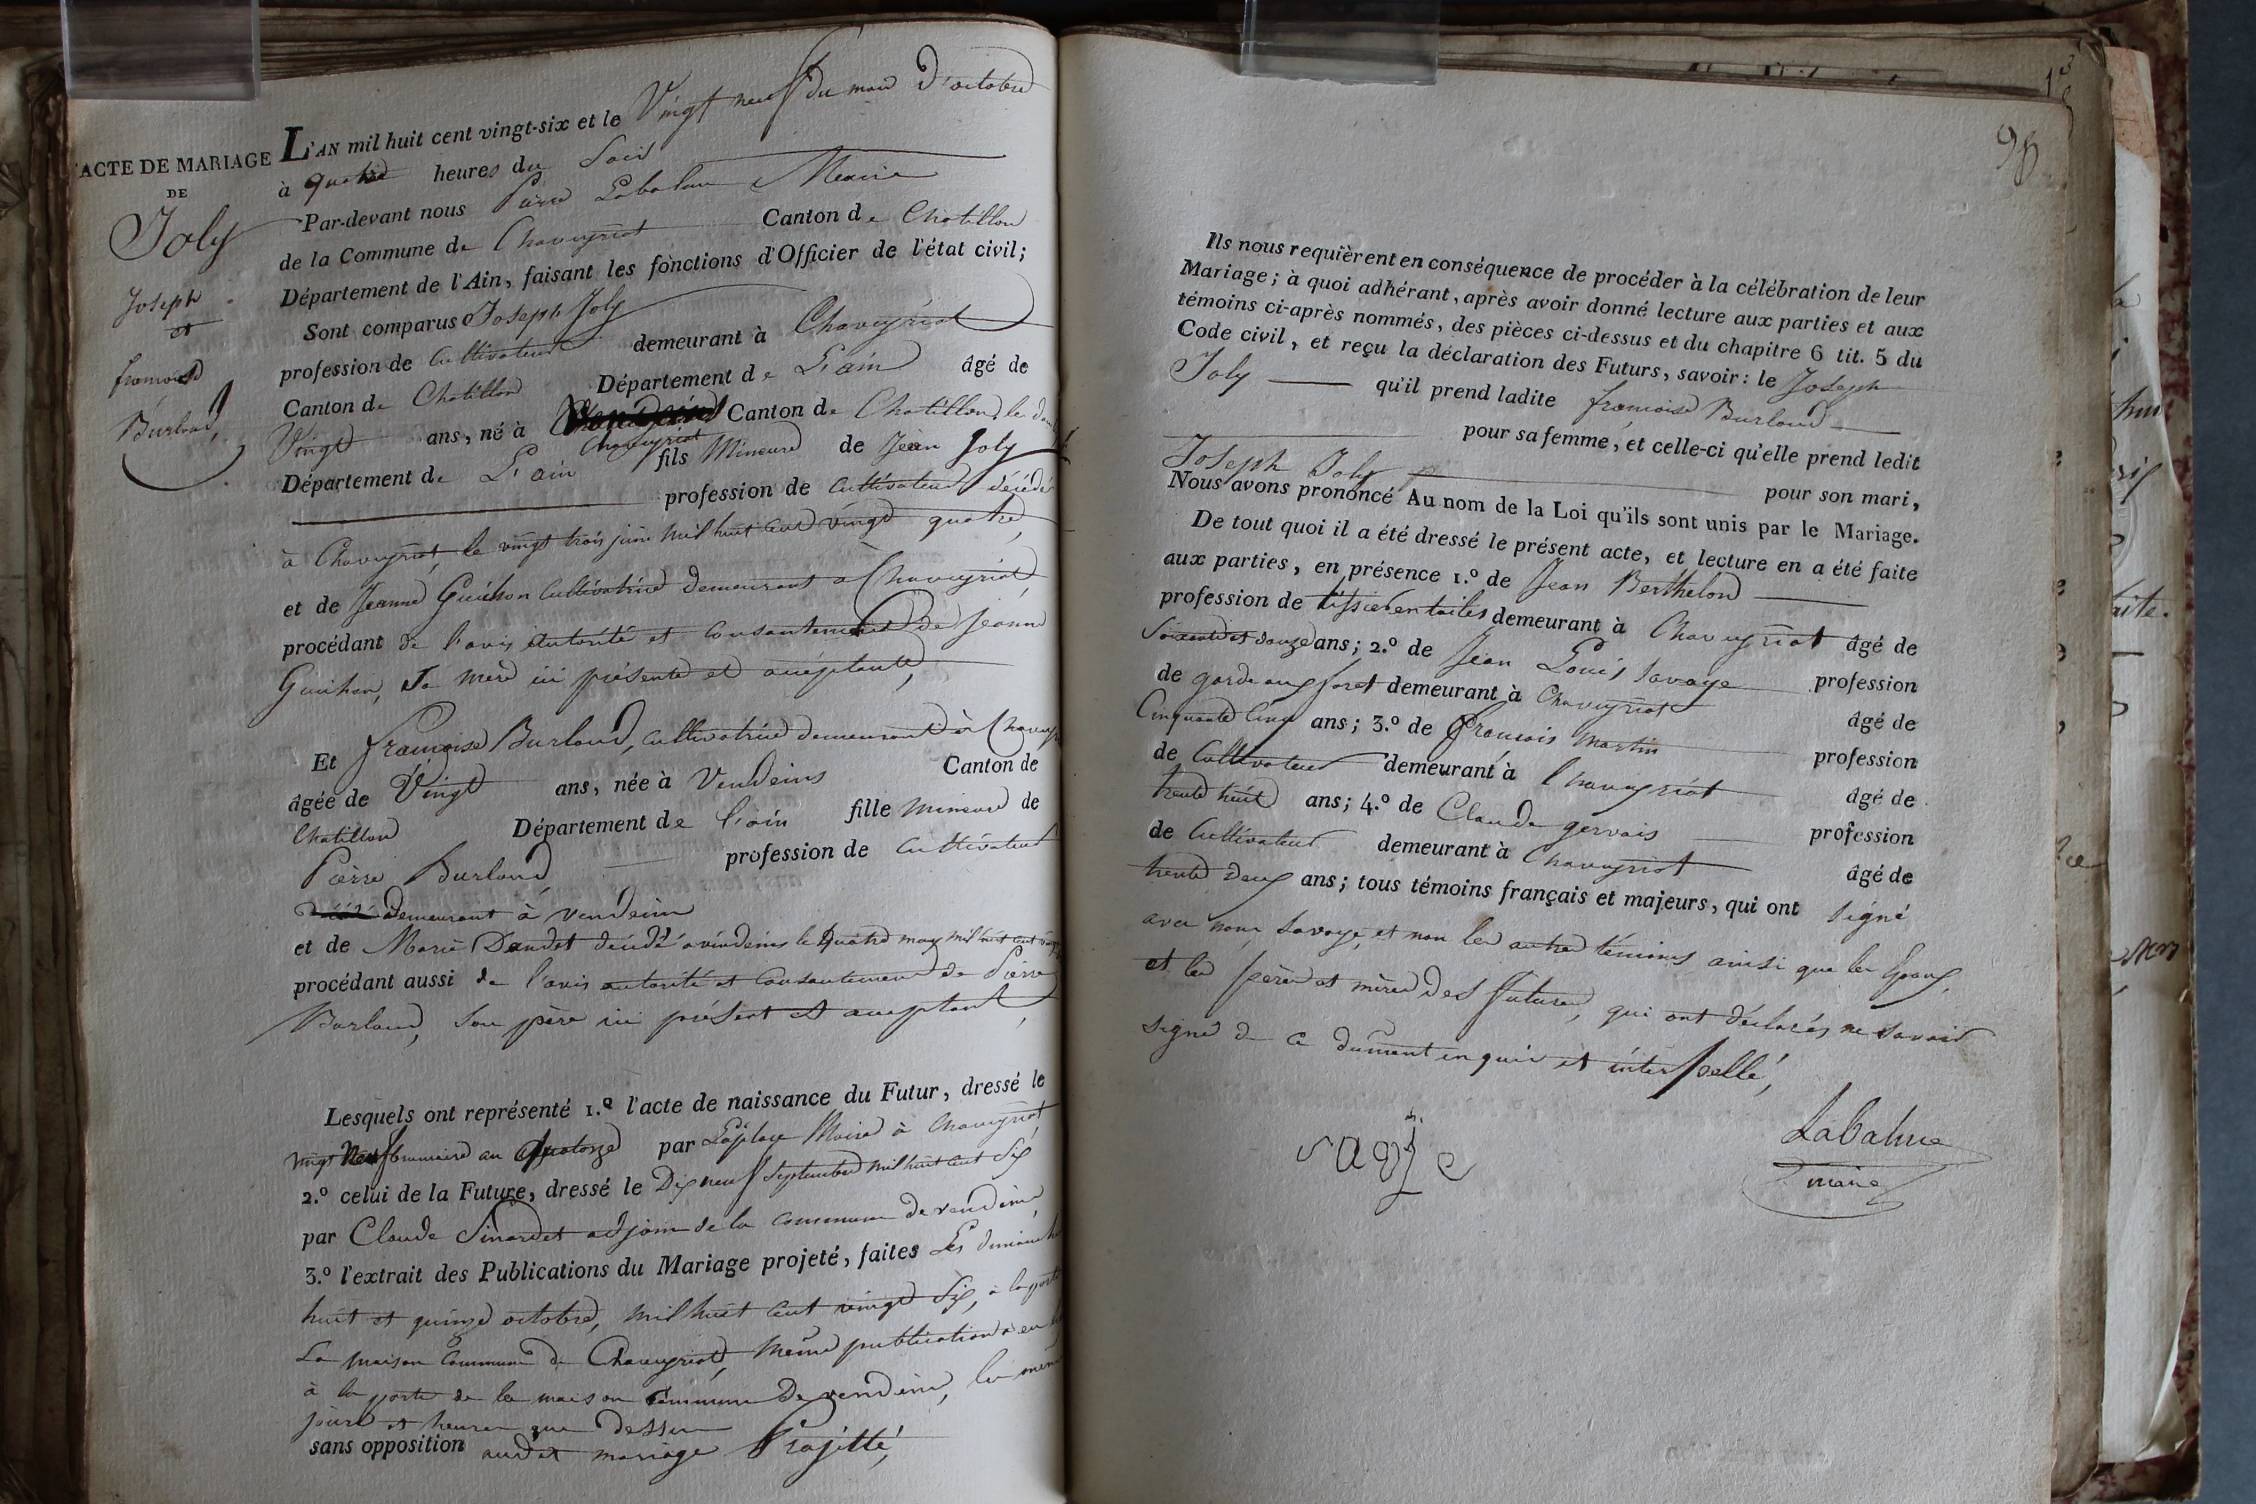 ACTE DE MARIAGE
DE
Joly
Joseph
et
françoise
Burloud,
L'AN mil huit cent vingt-six et le Vingt neuf du mois D'octobre
à quatre heures du Soir
Par-devant nous Pierre Labalme Maire
de la Commune de Chaveyriat Canton de Chatillon
Département de l'Ain, faisant les fonctions d'Officier de l'état civil;
Sont comparus Joseph Joly
profession de Cultivateur demeurant à Chaveyriat
Canton de Chatillon Département de L'ain âgé de
Vingt ans, né à Chaveyriat Canton de Chatillon, le
Département de L'ain fils Mineure de Jean Joly
profession de Cultivateur décédé
à Chaveyriat, le vingt trois juin mil huit cent vingt quatre,
et de Jeanne Guichon Cultivatrice demeurant à Chaveyriat,
procédant de l'avis autorité et consantement de Jeanne
Guichon, Sa mere ici présente et acceptante,
Et françoise Burloud, cultivatrice demeurant à Chavey
âgée de Vingt ans, née à Vendeins Canton de
Chatillon Département de l'ain fille mineure de
Pierre Burloud profession de Cultivateur
demeurant à vendeins
et de Marie Dandet décédé a vendeins le quatre may mil huit cent
procédant aussi de l'avis autorité et Consantement de Pierre
Burloud, Son père ici présent et acceptant,
Lesquels ont représenté 1.º l'acte de naissance du Futur, dressé le
vingt Neuf brumaire an quatorze par Laplace Maire à Chaveyriat,
2.º celui de la Future, dressé le Dix neuf Septembre mil huit cent Six
par Claude Sinardet adjoin de la commune de vendeins,
3.º l'extrait des Publications du Mariage projeté, faites Les dimanche
huit et quinze octobre, mil huit cent vingt Six, à la porte
La maison Commune de Chaveyriat, même publication a eu
à la porte de la maison commune de vendeins, les même
jours et heures que dessus
sans opposition audit mariage Projetté,
96
Ils nous requièrent en conséquence de procéder à la célébration de leur
Mariage; à quoi adhérant, après avoir donné lecture aux parties et aux
témoins ci-après nommés, des pièces ci-dessus et du chapitre 6 tit. 5 du
Code civil, et reçu la déclaration des Futurs, savoir: le Joseph
Joly qu'il prend ladite françoise Burloud
pour sa femme, et celle-ci qu'elle prend ledit
Joseph Joly pour son mari,
Nous avons prononcé Au nom de la Loi qu'ils sont unis par le Mariage.
De tout quoi il a été dressé le présent acte, et lecture en a été faite
aux parties, en présence 1.º de Jean Berthelon
profession de tissier en toiles demeurant à Chaveyriat âgé de
Soixante et douze ans; 2.º de Jean Louis Savoye profession
de garde aux foret demeurant à Chaveyriat âgé de
Cinquante Cinq ans; 3.º de françois Martin profession
de Cultivateur demeurant à Chaveyriat âgé de
trente huit ans; 4.º de Claude gervais profession
de Cultivateur demeurant à Chaveyriat âgé de
trente deux ans; tous témoins français et majeurs, qui ont signé
avec nous Savoye, et non les autres témoins ainsi que les Epoux,
et les père et mère des futures, qui ont déclarés ne savoir
signé de ce dument enquis et interpellé,
Labalme
maire